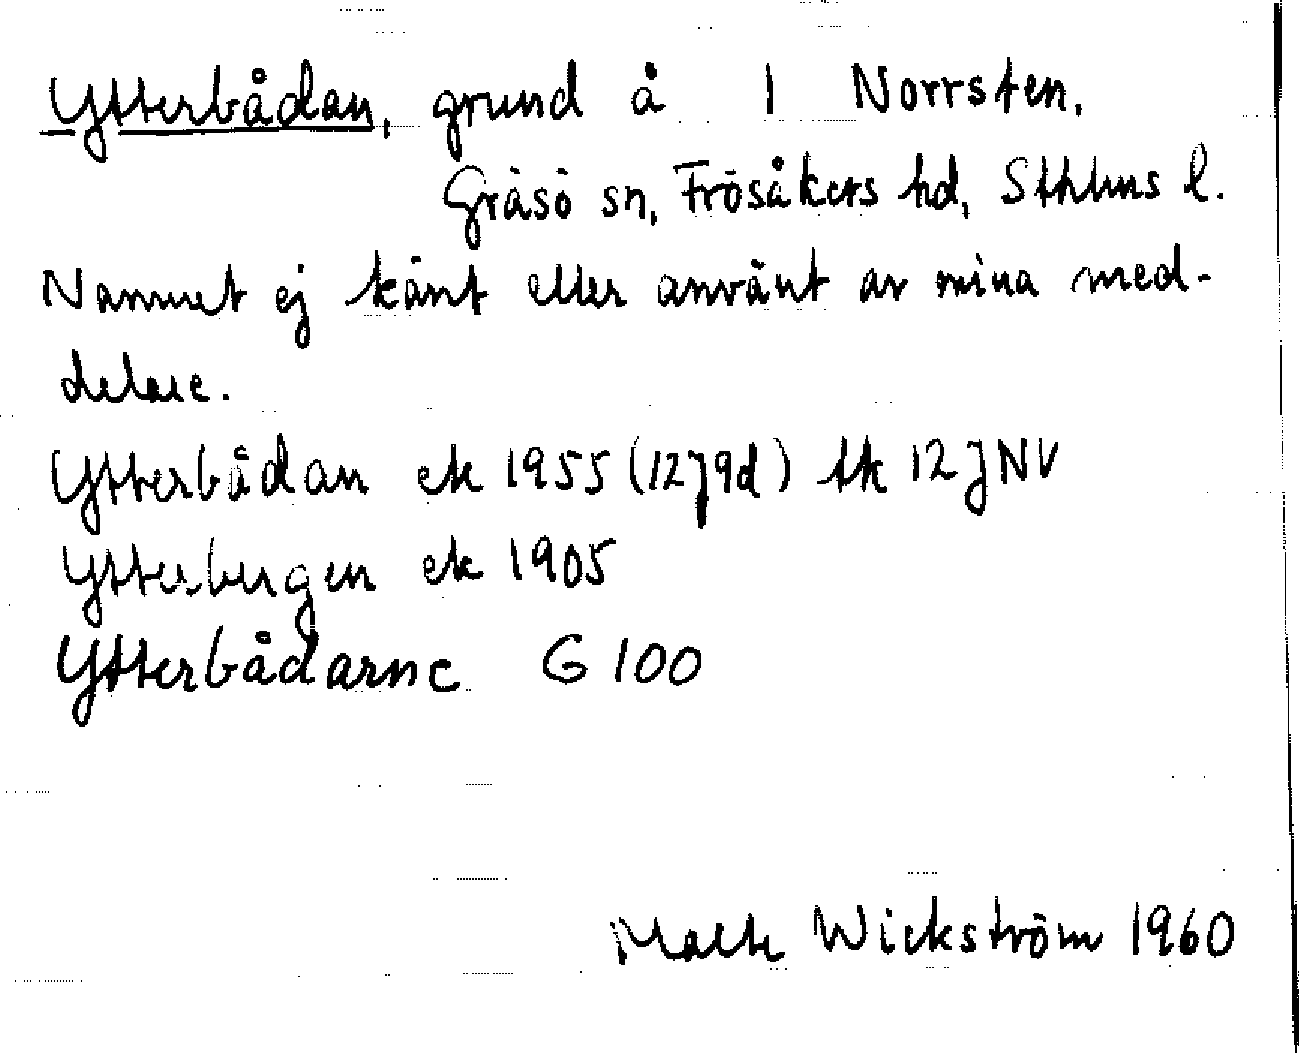 Ytterbådan, grund å 1 Norrsten.
Gräsö sn, Frösåkers hd, Sthlms l.
Namnet ej känt eller använt av mina med-
delare.
Ytterbådan ek 1955 (12J9d) tk 12JNV
Ytterbergen ek 1905
Ytterbådarne G 100
Malte Wickström 1960